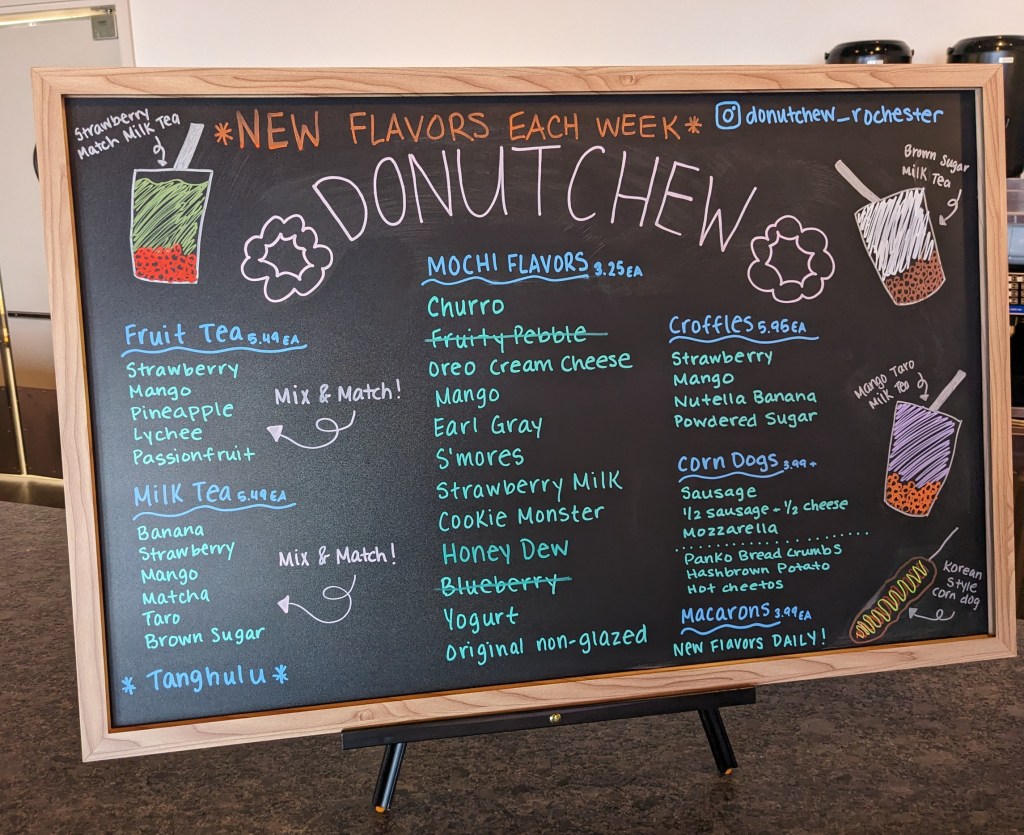 Strawberry
Match Milk Tea
*NEW FLAVORS EACH WEEK*
donutchew_rochester
DONUTCHEW
Brown Sugar
Milk Tea
Fruit Tea 5.49 EA
Strawberry
Mango
Pineapple
Lychee
Passionfruit
Mix & Match!
Milk Tea 5.49 EA
Banana
Strawberry
Mango
Matcha
Taro
Brown Sugar
Mix & Match!
* Tanghulu *
MOCHI FLAVORS 3.25 EA
Churro
Fruity Pebble
Oreo Cream Cheese
Mango
Earl Gray
S'mores
Strawberry Milk
Cookie Monster
Honey Dew
Blueberry
Yogurt
Original non-glazed
Croffles 5.95 EA
Strawberry
Mango
Nutella Banana
Powdered Sugar
Corn Dogs 3.99+
Sausage
1/2 sausage - 1/2 cheese
Mozzarella
Panko Bread Crumbs
Hashbrown Potato
Hot cheetos
Macarons 3.99 EA
New Flavors Daily!
Mango Taro
Milk Tea
Korean
Style
corn dog